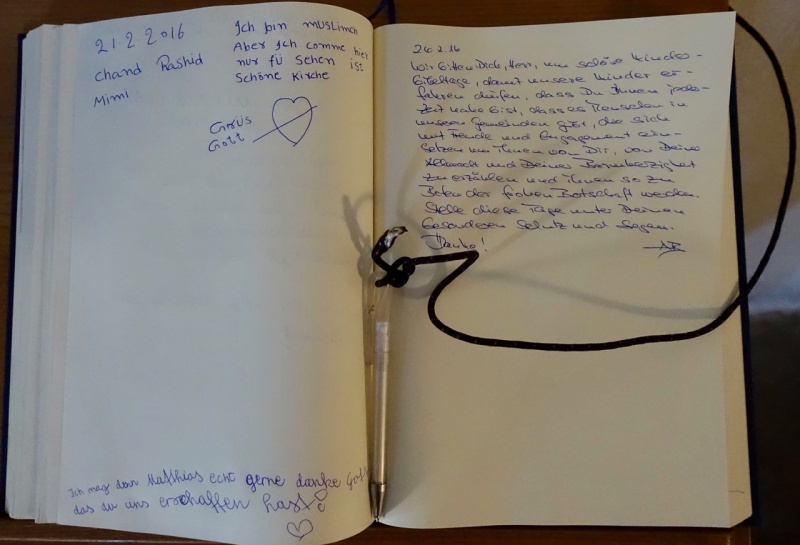 21.2.2016
Chand Rashid
Mimi
Ich bin muslimch
Aber Ich comme hier
nur fü sehen ist
schöne Kirche
Grüs
Gott
Ich mag den Matthias echt gerne danke Gott
das du uns erschaffen hast!
26.2.16
Wir bitten Dich, Herr, um schöne Kinder-
bibeltage, damit unsere Kinder er-
fahren dürfen, dass Du Ihnen jede-
zeit nahe bist, dass es Menschen in
unseren Gemeinden gibt, die sich
mit Freude und Engagement ein-
setzen um Ihnen von Dir, von Deiner
Allmacht und Deiner Barmherzigkeit
zu erzählen und ihnen so zu
Boten der frohen Botschaft werden.
Stelle diese Tage unter Deinen
besonderen Schutz und Segen.
Danke!